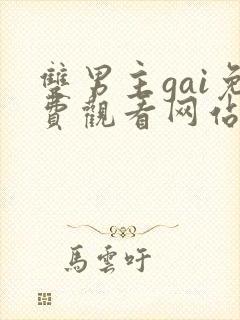 雙男主gai免
費觀看网佔
馬雲吁